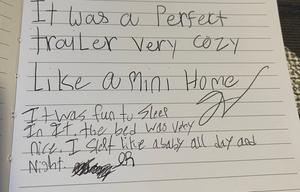 It was a Perfect
trailer very cozy
Like a mini Home
It was fun to sleep
In It. the bed was very
nice. I slept like a baby all day and
Night. OR